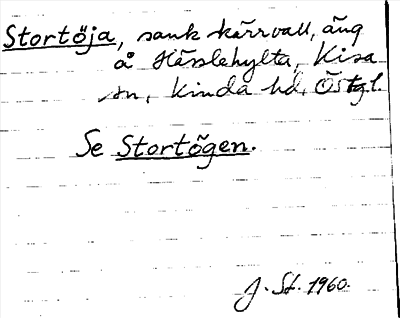 Stortöja, sank kärrvall, äng
å Hässlehylta, Kisa
sn, Kinda hd, Östgl.
Se Stortögen.
J. St. 1960.